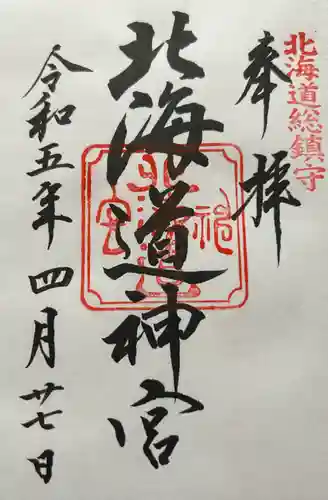 北海道総鎮守
奉拝
北海道神宮
令和五年四月廿七日